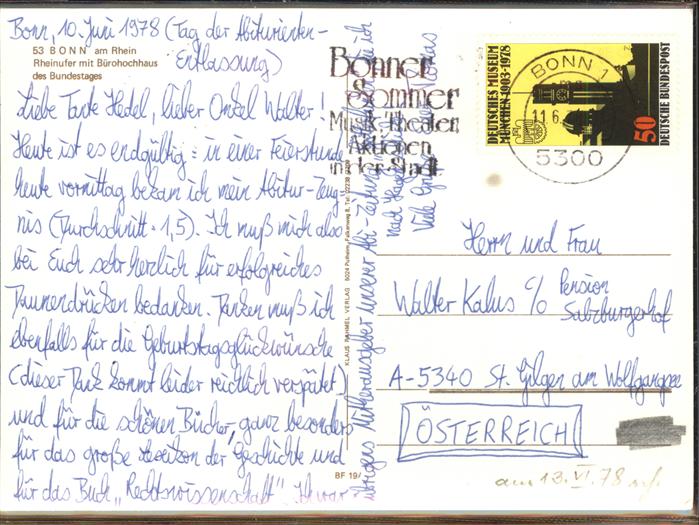 Bonn, 10. Juni 1978 (Tag der Abiturienten-
Entlassung)
53 BONN am Rhein
Rheinufer mit Bürohochhaus
des Bundestages
Liebe Tante Hedel, lieber Onkel Walter!
Heute ist es endgültig: in einer Feierstunde
heute vormittag bekam ich mein Abitur-Zeug-
nis (Durchschnitt: 1,5). Ich muß mich also
bei Euch sehr herzlich für erfolgreiches
Daumendrücken bedanken. Danken muß ich
ebenfalls für die Geburtstagsglückwünsche
(dieser Dank kommt leider reichlich verspätet)
und für die schönen Bücher, ganz besonders
für das große Lexikon der Geschichte und
für das Buch „Rechtswissenschaft". Ich war
übrigens Mitherausgeber unserer Abi-Zeitung
nach
Viele
KLAUS RAHMEL VERLAG
BF 19/
Bonner
Sommer
Musik, Theater,
Aktionen
in der Stadt
BONN 1
11.6.
5300
DEUTSCHES MUSEUM
MÜNCHEN 1903-1978
50
DEUTSCHE BUNDESPOST
Herrn und Frau
Walter Kalus c/o Pension
Salzburgerhof
A-5340 St. Gilgen am Wolfgangsee
ÖSTERREICH
am 13. VI. 78